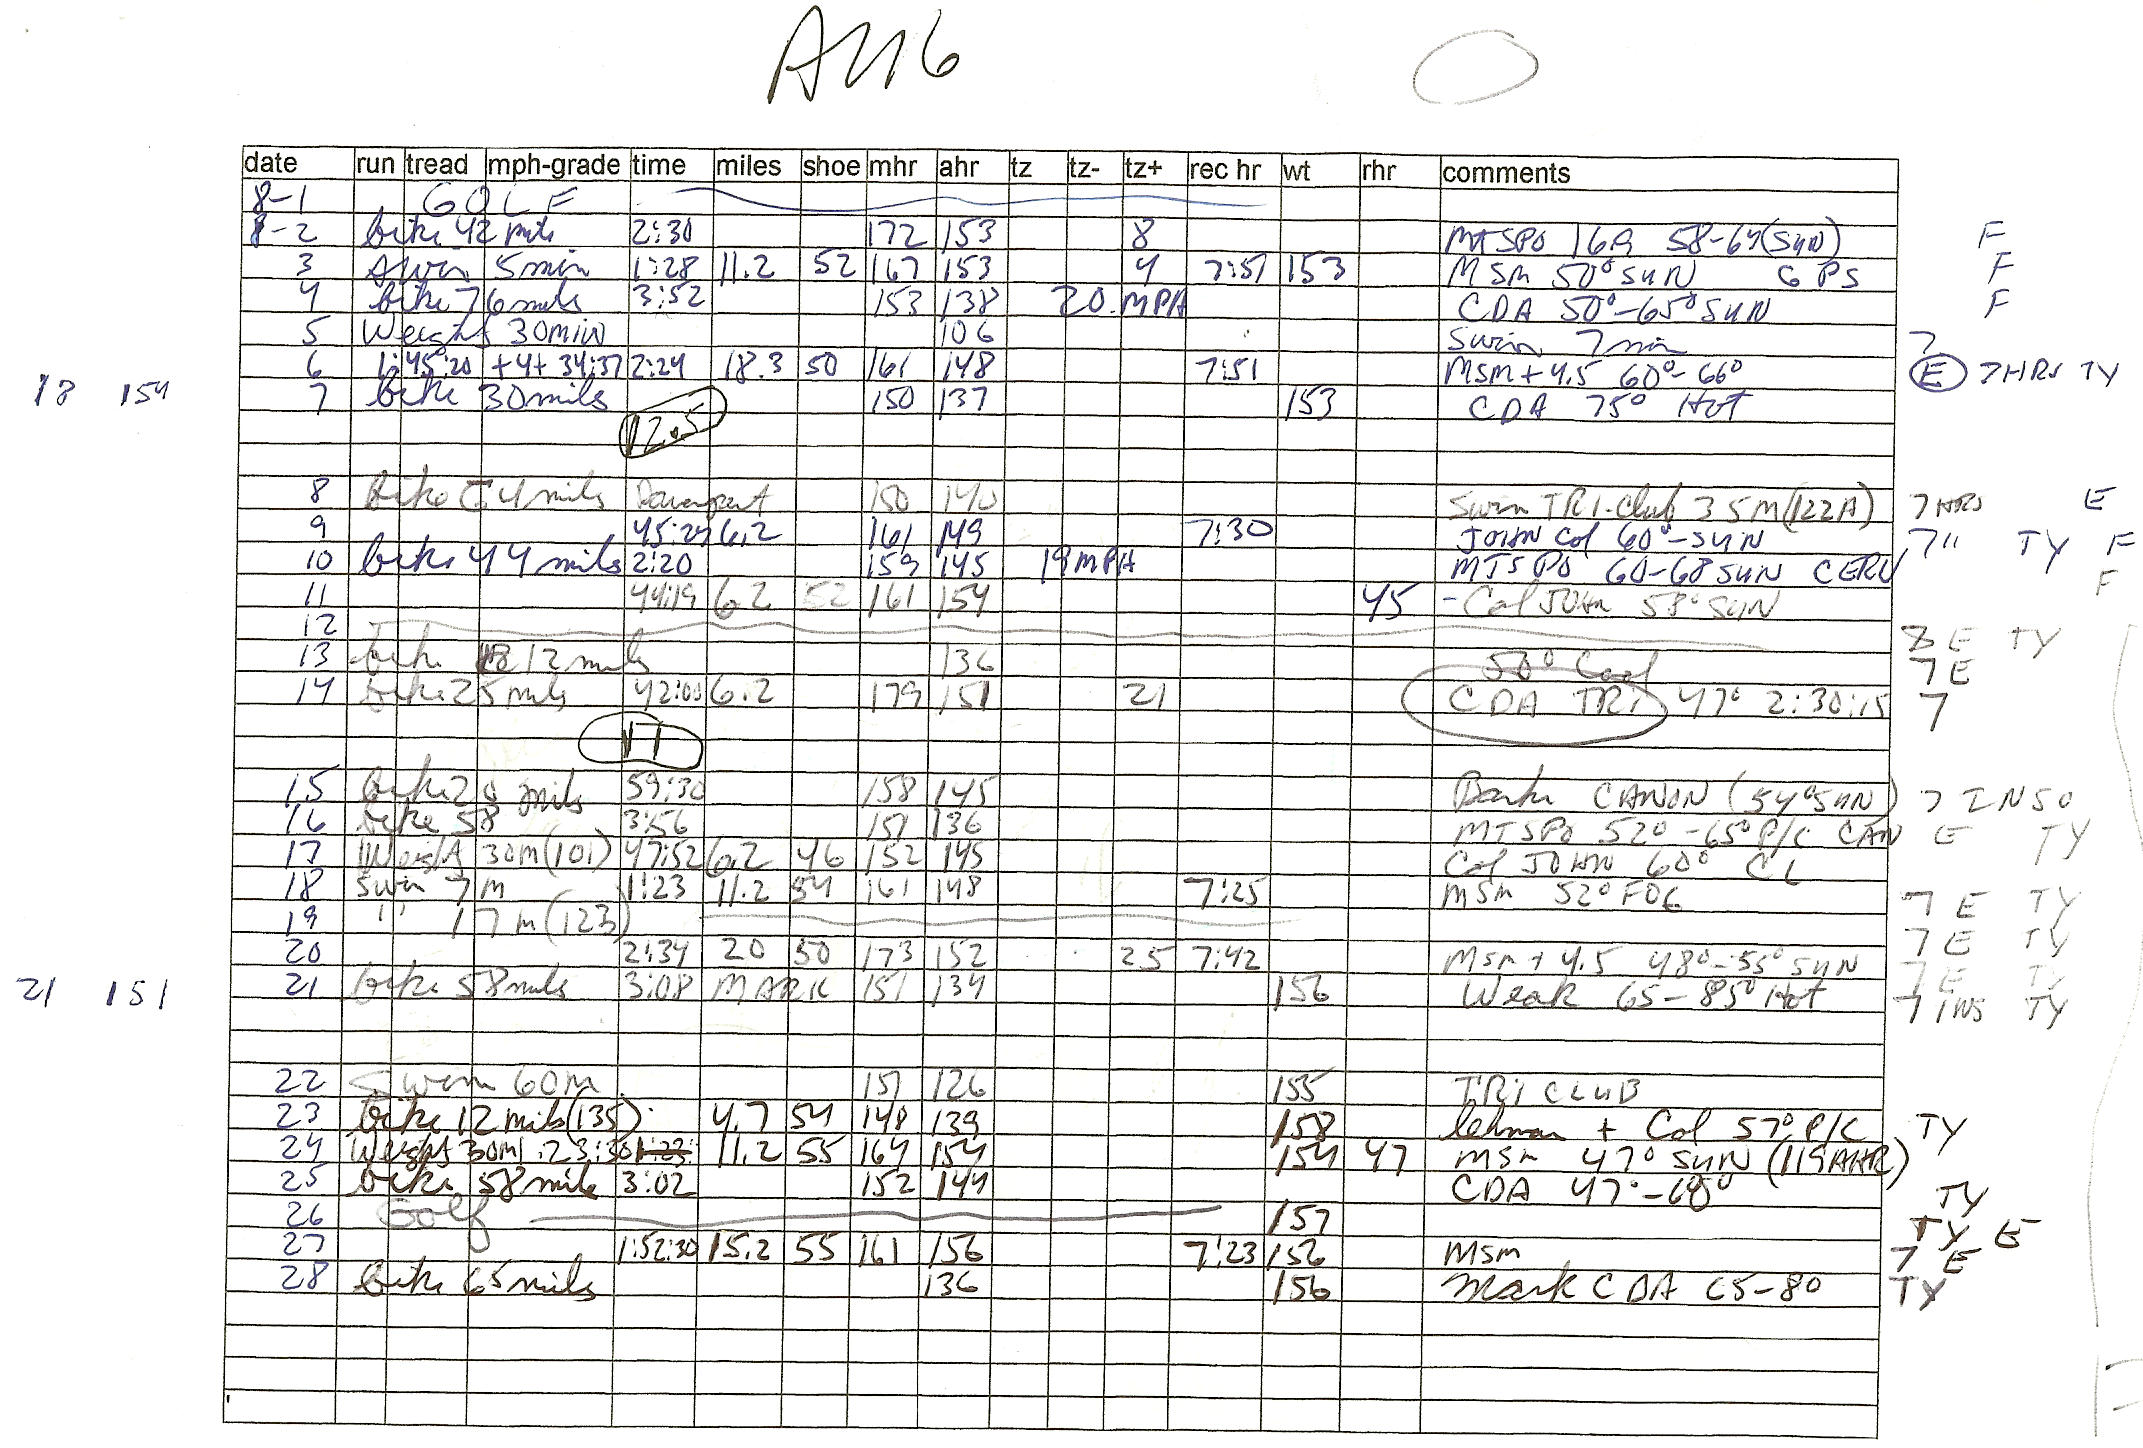 AUG
date run tread mph-grade time miles shoe mhr ahr tz tz- tz+ rec hr wt rhr comments
8-1 GOLF
8-2 bike 42 mile 2:30 172 153 8 MTSPO 58-64 (SUN) F
3 swim 5min 1:28 11.2 52 167 153 4 7:51 153 MSM 50° SUN 6 PS F
4 bike 76 mils 3:52 153 138 20. MPH CDA 50°-65° SUN F
5 Weights 30MIN 106 Swim 7 min 7
6 1:45:20 +4+ 34:37 2:24 18.3 50 161 148 7:51 MSM + 4.5 60°-66° E 7HRS TY
18 154 7 bike 30 mils 150 137 153 CDA 75° Hot
12.5
8 bike 54 mils Davenport 150 140 Swim TRI-Club 35M (122A) 7 HRS E
9 45:25 6.2 161 149 7:30 JOHN Col 60°-SUN 7 " TY F
10 bike 44 mils 2:20 159 145 19 MPH MTSPO 60-68 SUN CERV F
11 44:19 6.2 52 161 154 45 - Col JOHN 58° SUN
12 8 E TY
13 bike 12 mils 136 50° Cool 7 E
14 bike 25 mils 42:00 6.2 179 151 21 CDA TRI 47° 2:30:15 7
15 bike 20 mils 59:30 158 145 CANON (54° SUN) 7 INSO
16 bike 58 3:56 151 136 MTSPO 52°-65° P/C CAN E TY
17 Weight 30M (101) 47:52 6.2 46 152 145 Col JOHN 60° CL
18 Swim 7 M 1:23 11.2 54 161 148 7:25 MSM 52° FOG 7 E TY
19 " 17 m (123) 7 E TY
20 2:34 20 50 173 152 25 7:42 MSM + 4.5 48°-55° SUN 7 E TY
21 151 21 bike 58 mils 3:08 MARK 151 134 156 Weak 65-85° Hot 7 INS TY
22 Swim 60M 151 126 155 TRI CLUB
23 bike 12 mils (135) 4.7 54 148 139 158 lehman + Col 57° P/C TY
24 Weights 30M 1:23:30 1:23: 11.2 55 164 154 154 47 MSM 47° SUN (119 AHR)
25 bike 58 mile 3:02 152 144 CDA 47°-60° TY
26 Golf 157 TY E
27 1:52:30 15.2 55 161 156 7:23 156 MSM 7 E
28 bike 65 mils 136 156 Mark CDA 65-80 TY